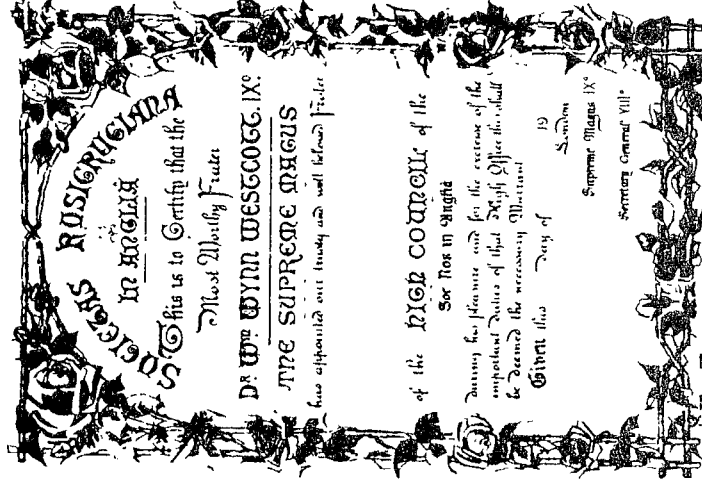 SOCIETAS ROSICRUCIANA
IN ANGLIA
This is to Certify that the
Most Worthy Frater
DR Wm WYNN WESTCOTT. IX°.
THE SUPREME MAGUS
has appointed our trusty and well beloved Frater
of the HIGH COUNCIL of the
Soc Ros in Anglia
during his pleasure and for the exercise of the
important duties of that High Office this shall
be deemed the necessary Warrant
Given this day of 19
London
Supreme Magus IX°
Secretary General VIII°